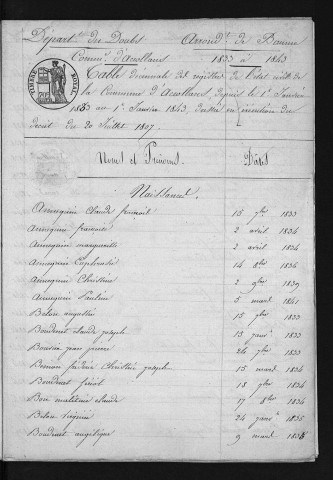 Départ.t du Doubs Arrond.t de Baume
Comm.e d'Accollans 1833 à 1843
TIMBRE ROYAL
Table décennale des registres de l'état civil de
la Commune d'Accollans, depuis le 1.er Janvier
1833 au 1.er Janvier 1843, dressée en exécution du
décret du 20 Juillet 1807.
Noms et Prénoms. Dates
Naissances.
Annequin Claude françois 15 7bre 1833
Annequin françoise 2 avril 1834
Annequin marguerite 2 avril 1834
Annequin Euphrosie 14 8bre 1836
Annequin Christine 2 9bre 1839
Annequin Pauline 5 mars 1841
Belon augustin 15 7bre 1833
Boudinet claude joseph 13 janv.r 1833
Bouvier jean pierre 24 7bre 1833
Christin joseph 15 mars 1834
Boudinet 18 7bre 1834
Bon claude 17 8bre 1834
Belon 24 janv.r 1835
Boudinet angélique 9 mars 1835